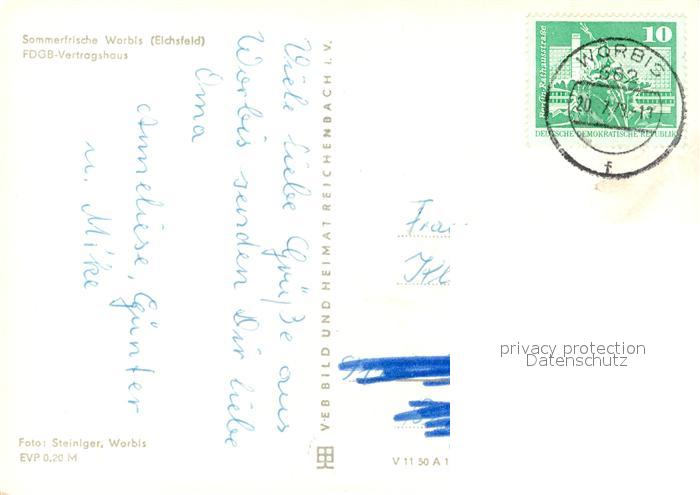 Sommerfrische Worbis (Eichsfeld)
FDGB-Vertragshaus
Viele liebe Grüße aus
Worbis senden Dir liebe
Oma
Anneliese, Günter
u. Mike
Foto: Steiniger, Worbis
EVP 0,20 M
V·EB BILD UND HEIMAT REICHENBACH I. V.
V 11 50 A 1
10
Berlin, Rathausstraße
DEUTSCHE DEMOKRATISCHE REPUBLIK
WORBIS
562
f
privacy protection
Datenschutz